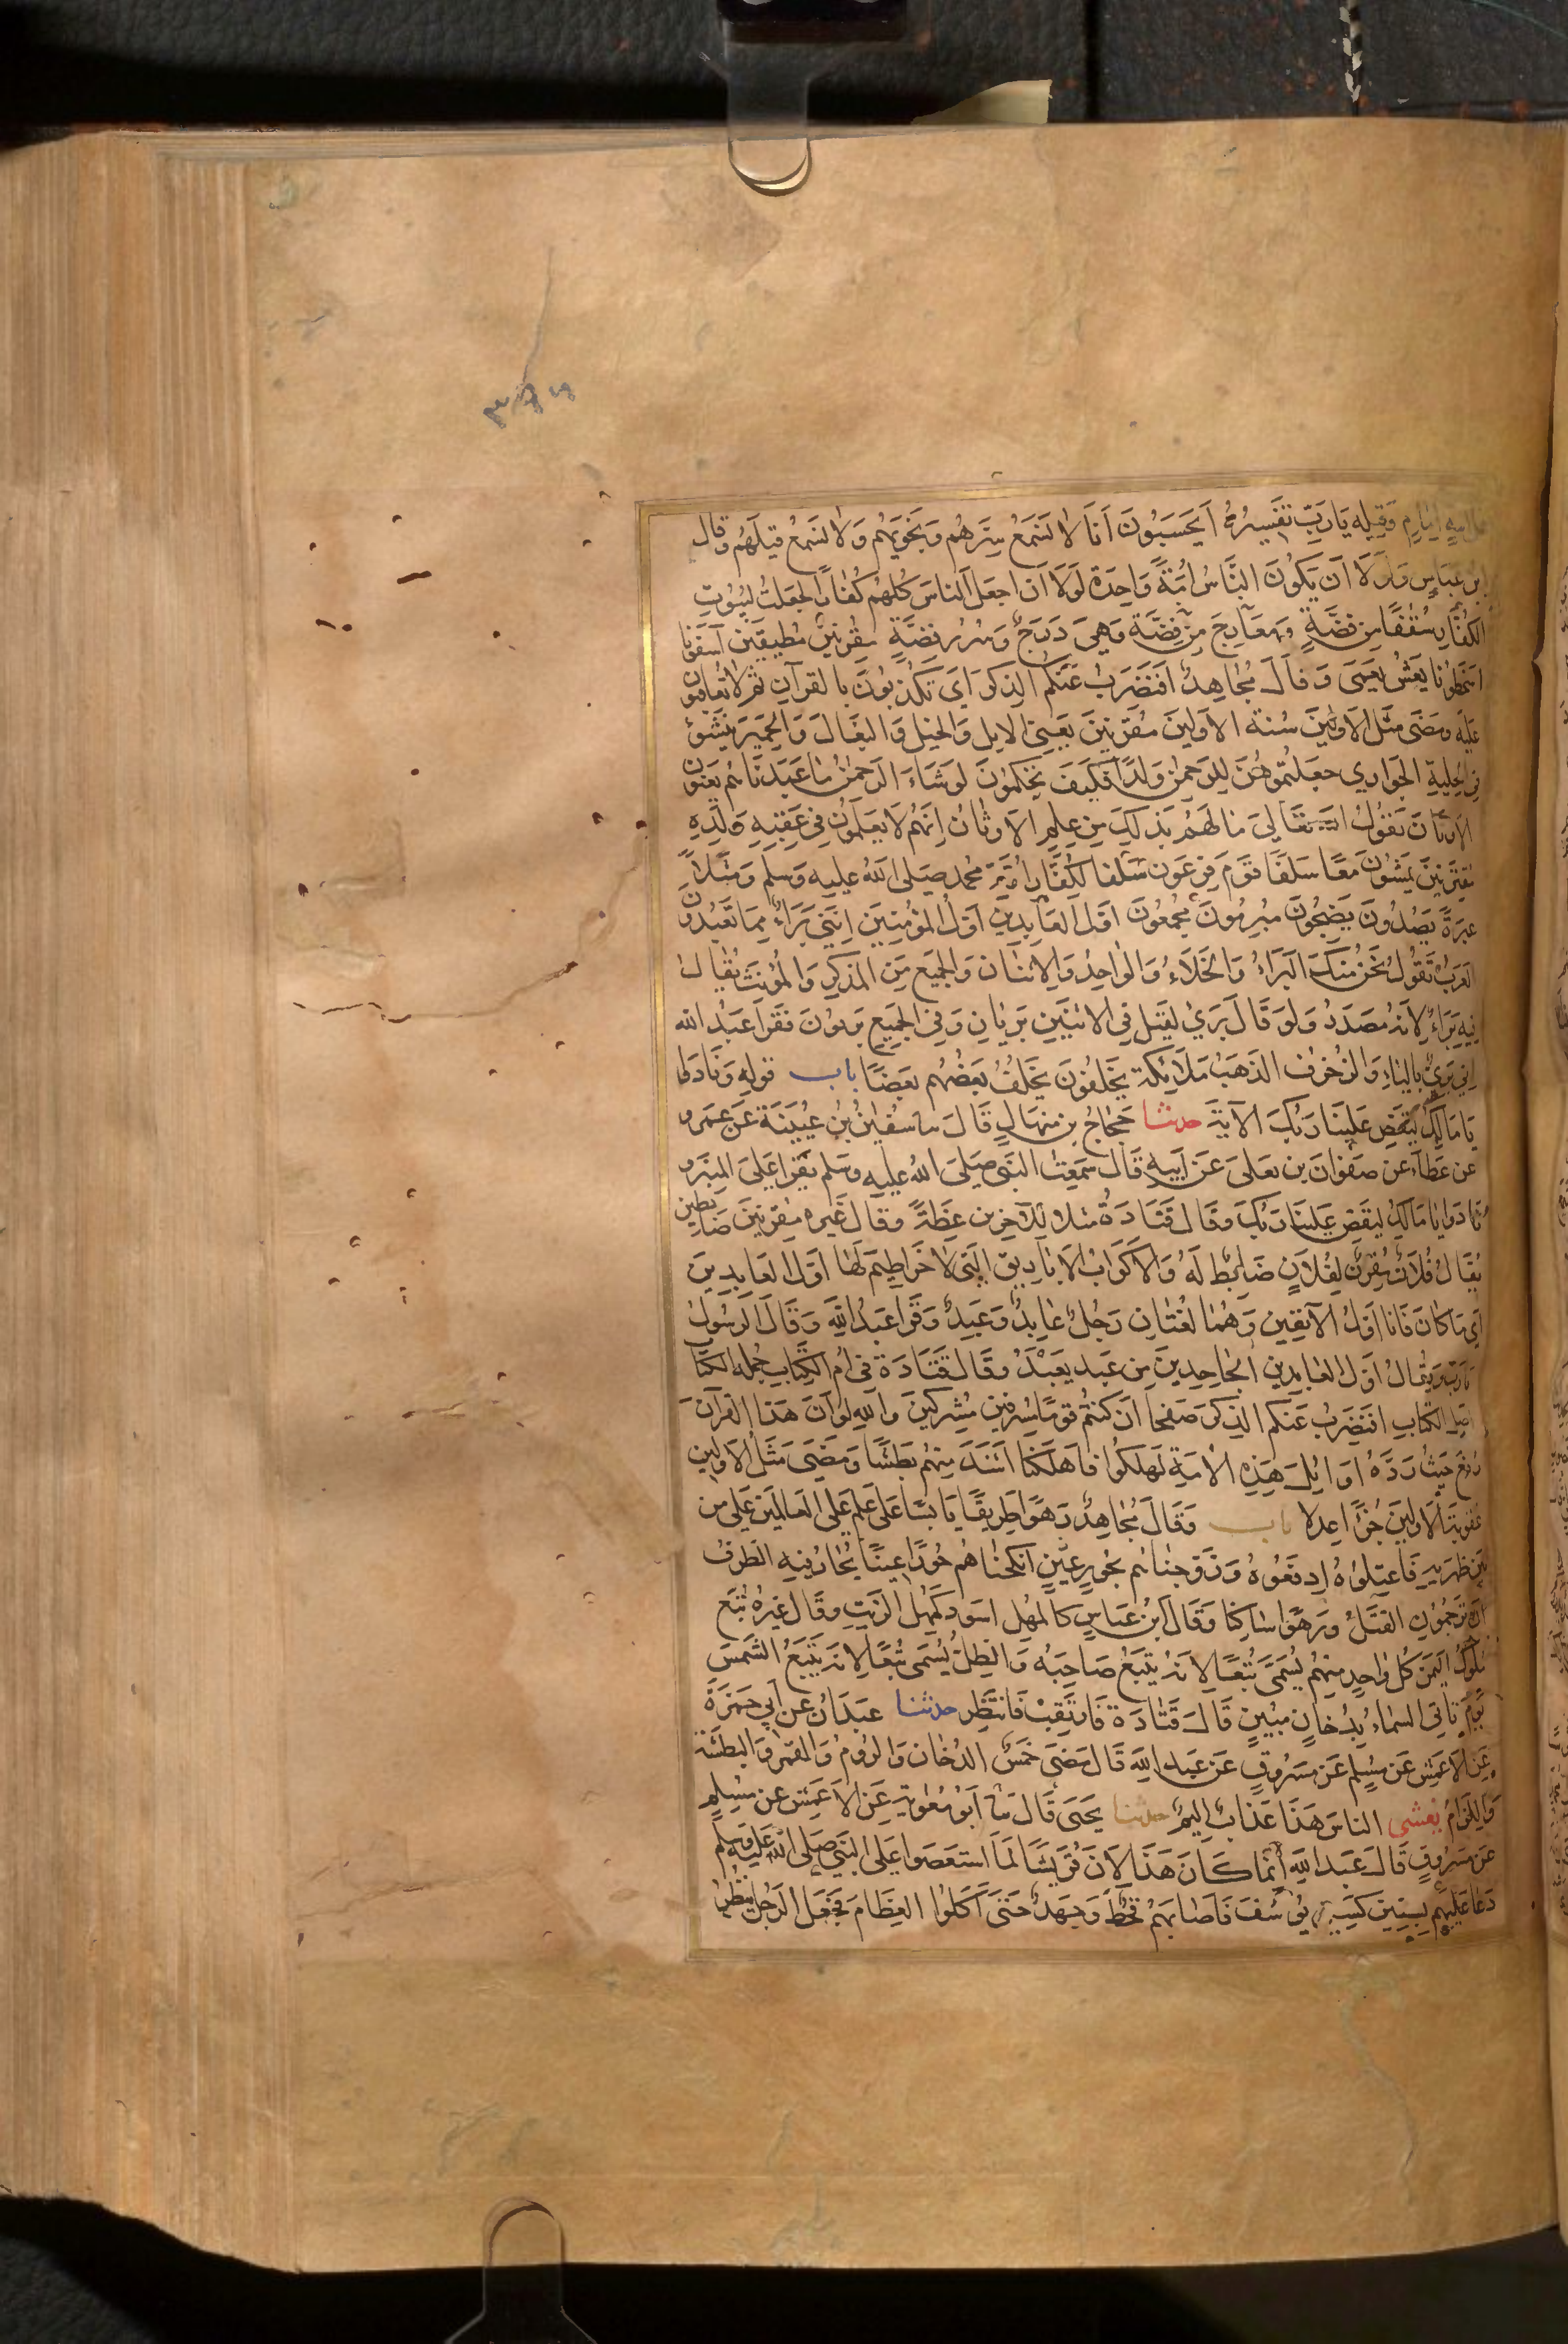 ٣٩٩
امة امام وقيله يا رب تفسيره ايحسبون انا لا نسمع سرهم ونجويهم ولا نسمع قيلهم وقال
ابن عباس ولولا ان يكون الناس امة واحدة لولا ان اجعل الناس كلهم كفارا لجعلت لبيوت
الكفار سقفا من فضة ومعارج من فضة وهي درج وسرر فضة مقرنين مطيقين آسفونا
اسخطونا يعش يعمى وقال مجاهد افنضرب عنكم الذكر اي تكذبون بالقرآن ثم لا تعاقبون
عليه ومضى مثل الاولين سنة الاولين مقرنين يعني الابل والخيل والبغال والحمير ينشؤ
في الحلية الجواري جعلتموهن للرحمن ولدا فكيف تحكمون لو شاء الرحمن ما عبدناهم يعنون
الاوثان بقول الله تعالى ما لهم بذلك من علم الاوثان انهم لا يعلمون في عقبه ولده
مقترنين يمشون معا سلفا قوم فرعون سلفا لكفار امة محمد صلى الله عليه وسلم ومثلا
عبرة يصدون يضجون مبرمون مجمعون اول العابدين اول المؤمنين انني براء مما تعبدون
العرب تقول نحن منك البراء والخلاء والواحد والاثنان والجميع من المذكر والمؤنث يقال
فيه براء لانه مصدر ولو قال بري لقيل في الاثنين بريان وفي الجميع بريون وقرا عبد الله
انني بري بالياء والزخرف الذهب ملائكة يخلفون يخلف بعضهم بعضا باب قوله ونادوا
يا مالك ليقض علينا ربك الآية حدثنا حجاج بن منهال قال نا سفين بن عيينة عن عمرو
عن عطاء عن صفوان بن يعلى عن ابيه قال سمعت النبي صلى الله عليه وسلم يقرا على المنبر و
نادوا يا مالك ليقض علينا ربك وقال قتادة مثلا للآخرين عظة وقال غيره مقرنين ضابطين
يقال فلان مقرن لفلان ضابط له والاكواب الاباريق التي لا خراطيم لها اول العابدين
اي ما كان فانا اول الآنفين وهما لغتان رجل عابد وعبد وقرا عبد الله وقال الرسول
يا رب ويقال اول العابدين الجاحدين من عبد يعبد وقال قتادة في ام الكتاب جملة الكتاب
اصل الكتاب افنضرب عنكم الذكر صفحا ان كنتم قوما مسرفين مشركين والله لو ان هذا القرآن
رفع حيث رده اوايل هذه الامة لهلكوا فاهلكنا اشد منهم بطشا ومضى مثل الاولين
عقوبة الاولين جزءا عدلا باب وقال مجاهد رهوا طريقا يابسا على علم على العالمين على من
بين ظهريه فاعتلوه ادفعوه وزوجناهم بحور عين انكحناهم حورا عينا يحار فيه الطرف
ان ترجمون القتل ورهوا ساكنا وقال ابن عباس كالمهل اسود كمهل الزيت وقال غيره تبع
ملوك اليمن كل واحد منهم يسمى تبعا لانه يتبع صاحبه والظل يسمى تبعا لانه يتبع الشمس
يوم تاتي السماء بدخان مبين قال قتادة فارتقب فانتظر حدثنا عبدان عن ابي حمزة
عن الاعمش عن مسلم عن مسروق عن عبد الله قال مضى خمس الدخان والروم والقمر والبطشة
واللزام يغشى الناس هذا عذاب اليم حدثنا يحيى قال نا ابو معوية عن الاعمش عن مسلم
عن مسروق قال عبد الله انما كان هذا لان قريشا لما استعصوا على النبي صلى الله عليه وسلم
دعا عليهم بسنين كسني يوسف فاصابهم قحط وجهد حتى اكلوا العظام فجعل الرجل ينظر